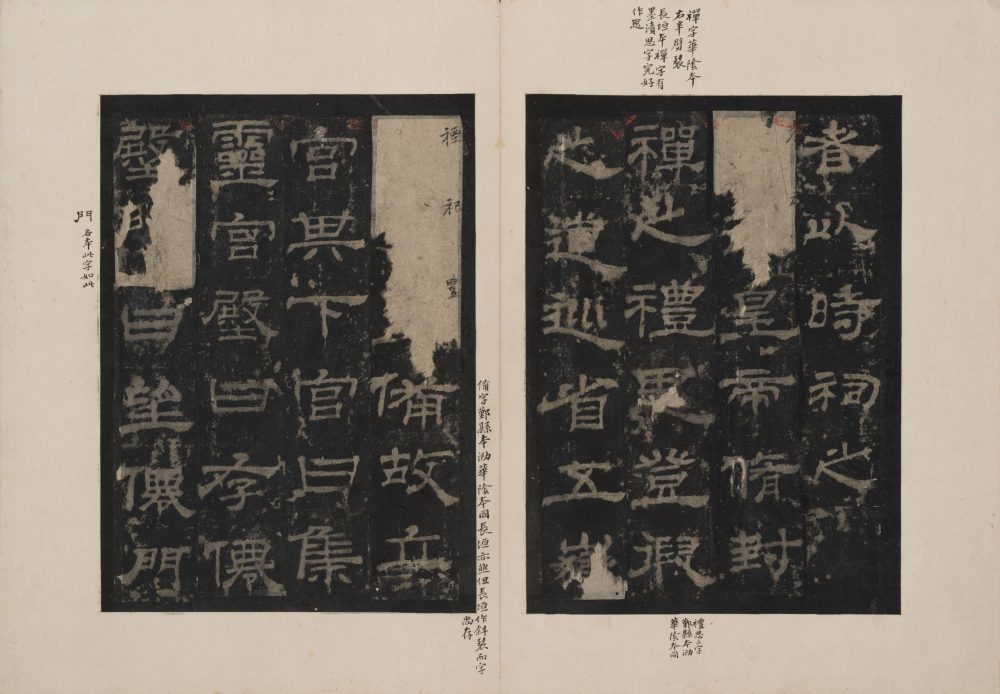 禪字華陰本
右半劈裂
長垣本禪字有
墨漬思字完好
作恖
者以時祠之
皇帝脩封
禪之禮思登假
之道巡省五嶽
禮思二字
鄞縣本泐
華陰本同
禋祀豐備故立
宮其下宮曰集
靈宮殿曰存僊
殿門曰望僊門
備字鄞縣本泐華陰本同長垣亦然但長垣作斜裂而字
尚存
門 各本此字如此